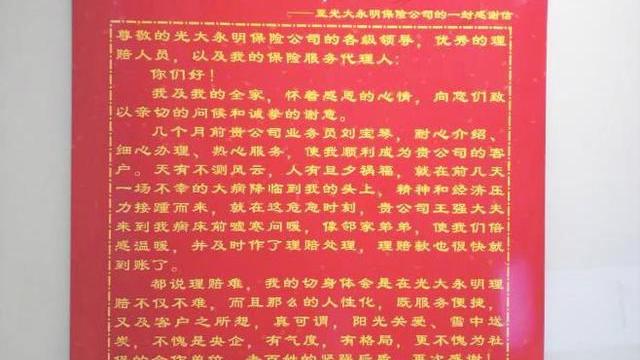 ——至光大永明保险公司的一封感谢信
尊敬的光大永明保险公司的各级领导，优秀的理
赔人员，以及我的保险服务代理人：
你们好！
我及我的全家，怀着感恩的心情，向您们致
以亲切的问候和诚挚的谢意。
几个月前贵公司业务员刘宝琴，耐心介绍、
细心办理、热心服务，使我顺利成为贵公司的客
户。天有不测风云，人有旦夕祸福，就在前几天
一场不幸的大病降临到我的头上，精神和经济压
力接踵而来，就在这危急时刻，贵公司王强大夫
来到我病床前嘘寒问暖，像邻家弟弟，使我们倍
感温暖，并及时作了理赔处理，理赔款也很快就
到账了。
都说理赔难，我的切身体会是在光大永明理
赔不仅不难，而且那么的人性化，既服务便捷，
又及客户之所想，真可谓，阳光关爱、雪中送
炭，不愧是央企，有气度，有格局，更不愧为社